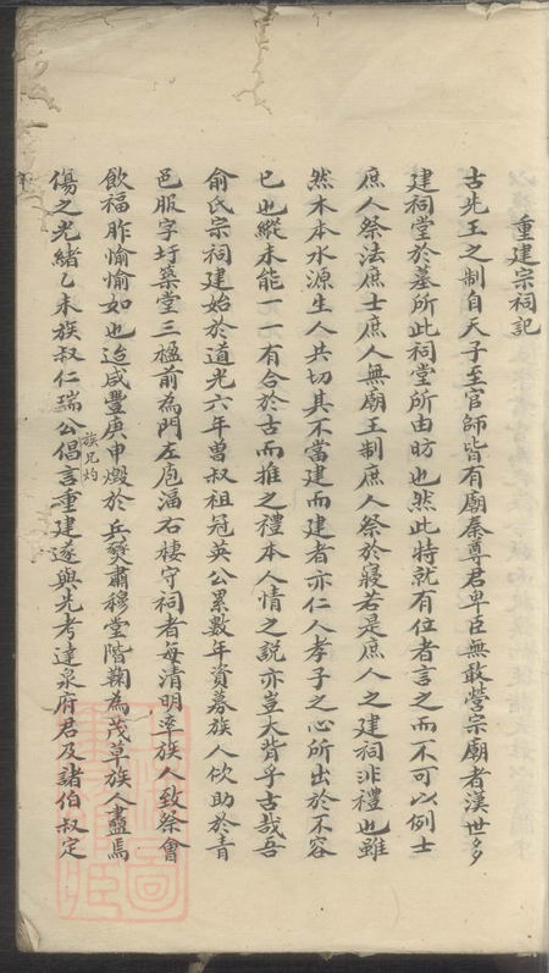 重建宗祠記
古先王之制自天子至官師皆有廟秦尊君卑臣無敢營宗廟者漢世多
建祠堂於墓所此祠堂所由昉也然此特就有位者言之而不可以例士
庶人祭法庶士庶人無廟王制庶人祭於寢若是庶人之建祠非禮也雖
然木本水源生人共切其不當建而建者亦仁人孝子之心所出於不容
已也縱未能一一有合於古而推之禮本人情之説亦豈大背乎古哉吾
俞氏宗祠建始於道光六年曾叔祖冠英公累數年資募族人佽助於青
邑服字圩築堂三楹前為門左庖湢右棲守祠者每清明率族人致祭會
飲福胙愉愉如也迨咸豐庚申燬於兵燹肅穆堂階鞠為茂草族人盡焉
傷之光緒乙未族叔仁瑞公族兄灼倡言重建遂與先考達泉府君及諸伯叔定